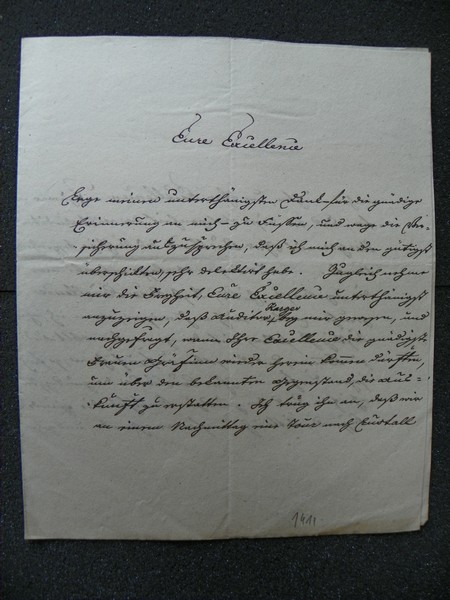 Eure Excellence
Lege meinen unterthänigsten Dank für die gnädige
Erinnerung an mich zu Füssen, und wage die Ver-
sicherung auszusprechen, daß ich mich an den gütigst
überschikten, sehr delektirt habe. Zugleich nehme
mir die Freyheit, Eure Excellence unterthänigst
anzuzeigen, daß Auditor
bey mir gewesen, und
nachgefragt, wann Ihro Excellence die gnädigste
Frau Gräfinn wieder herein kommen dürften,
um über den bekannten Gegenstand, die Aus-
kunft zu erstatten. Ich trug ihn an, daß wir
an einem Nachmittag eine Tour nach